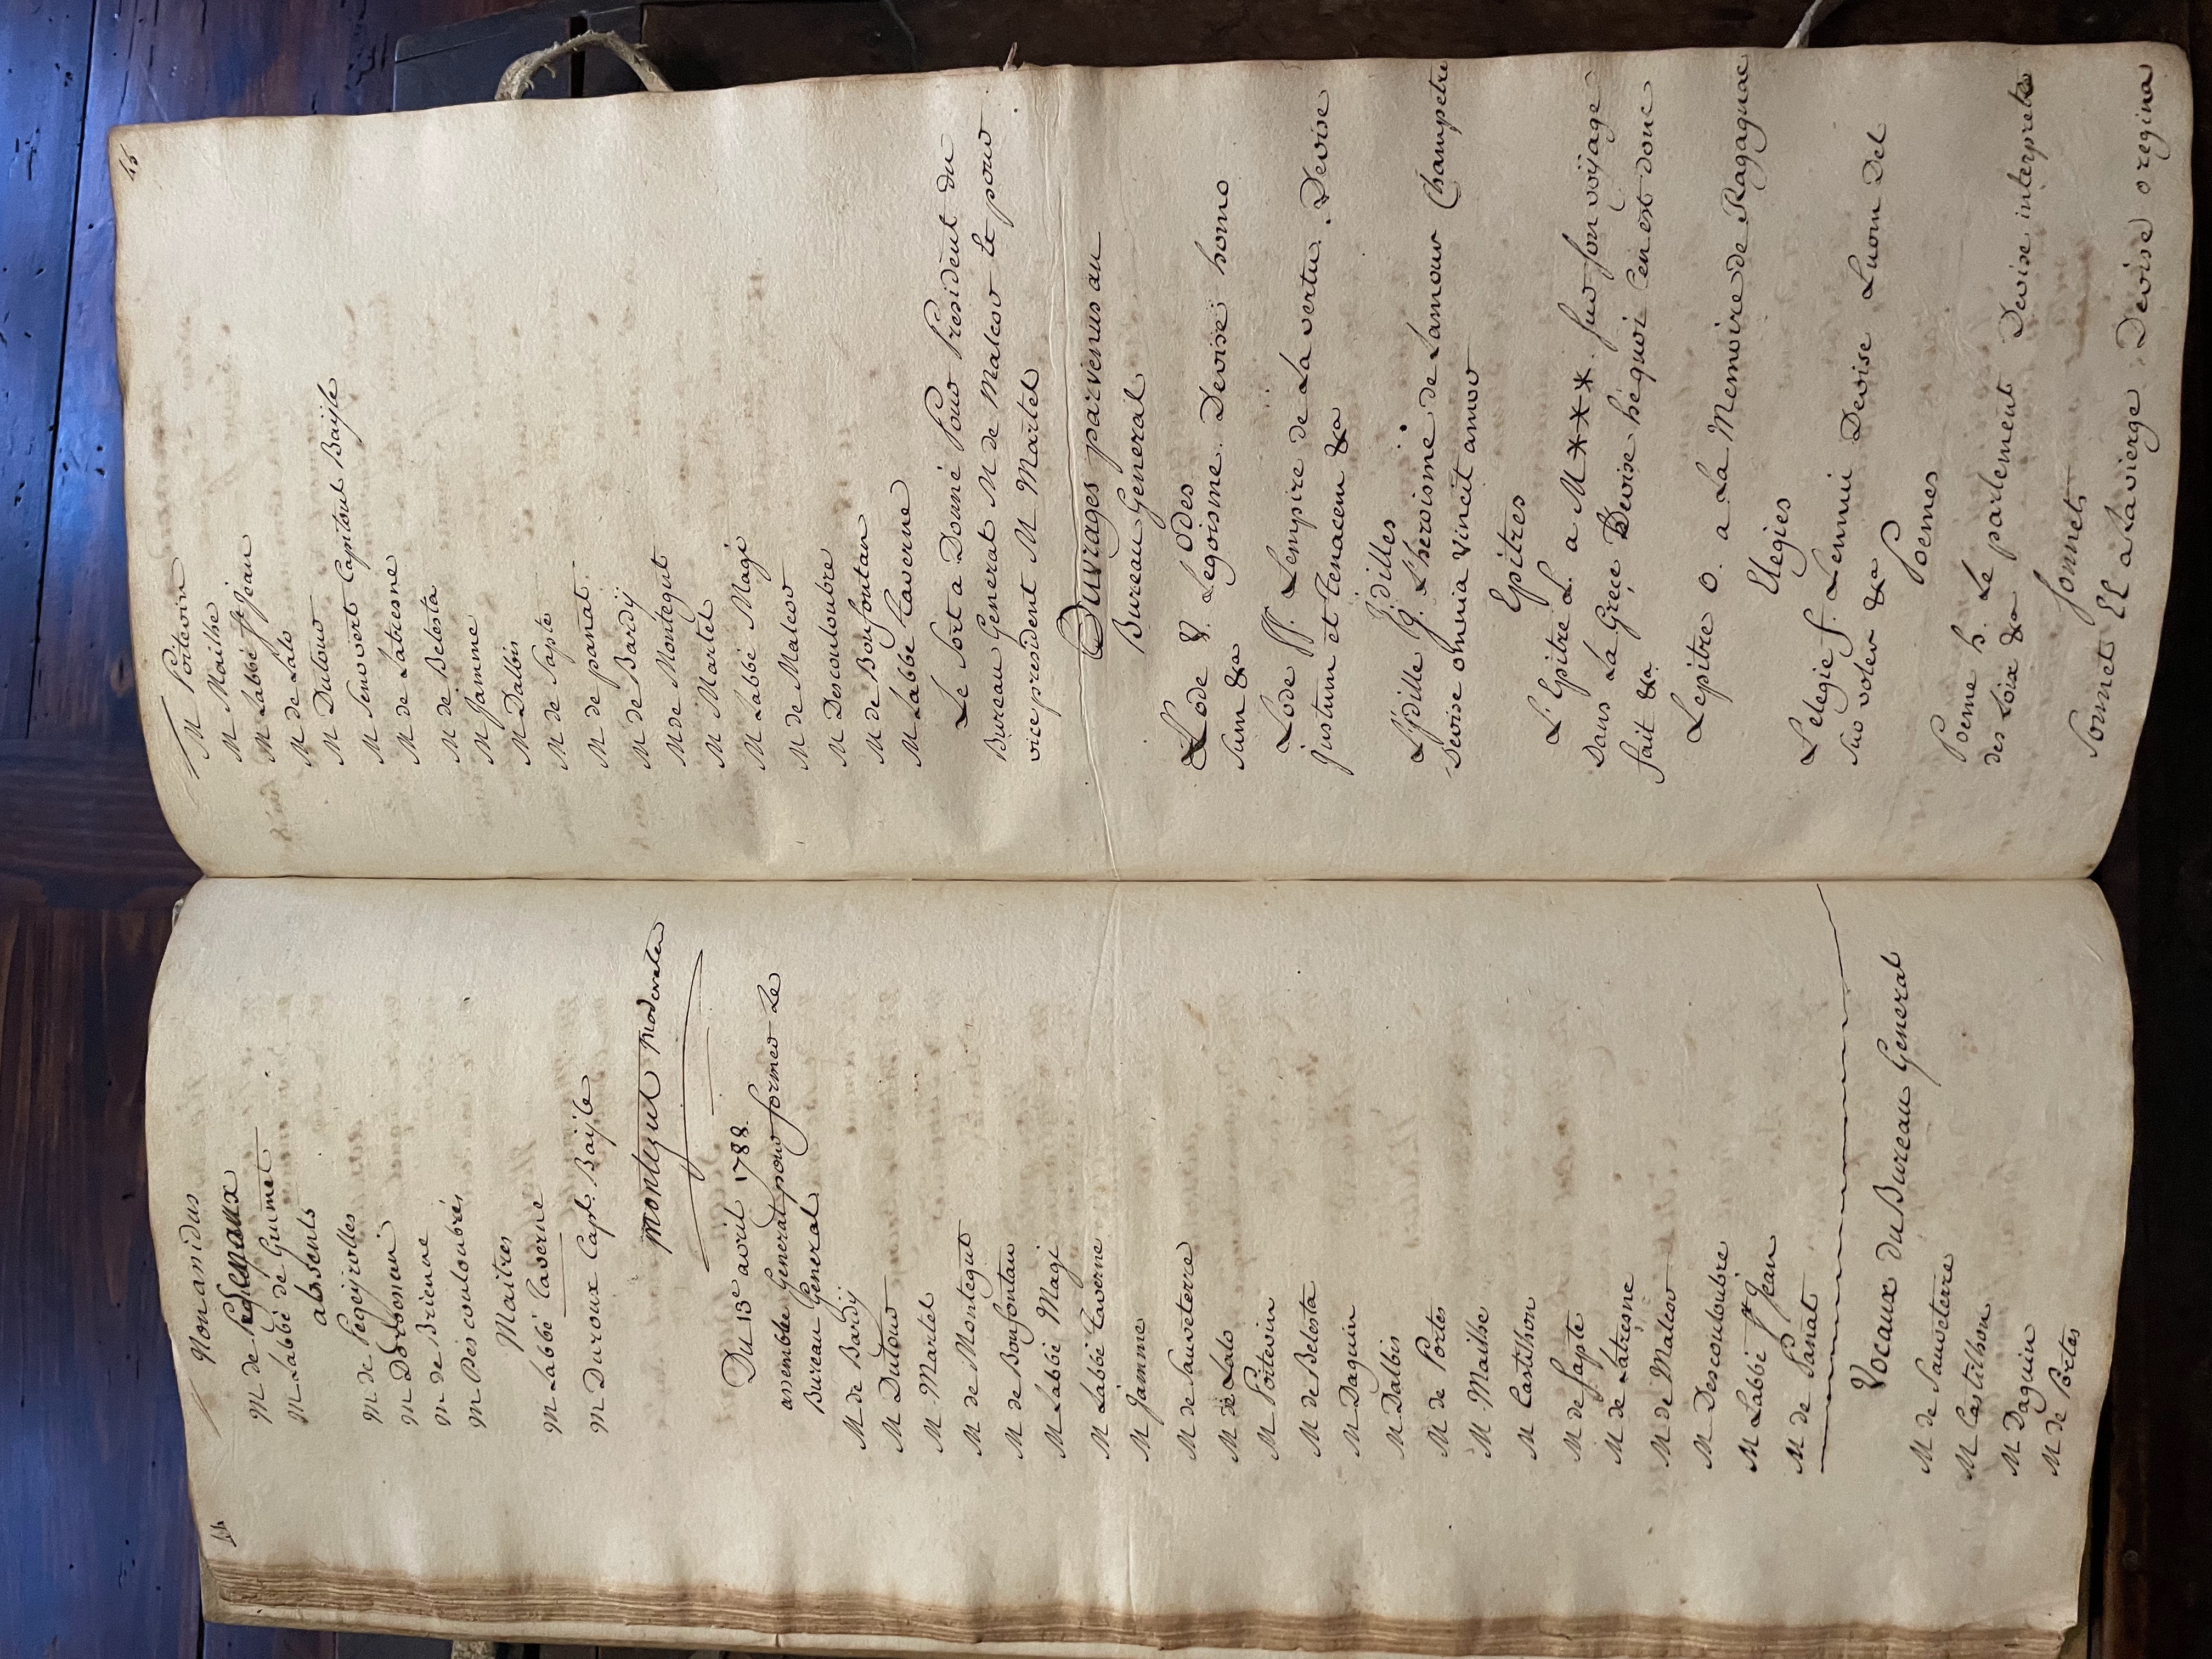 44
Monanidus
M de
M Labbé de Guimet
absents
M de Pegeyrolles
M Dorbessan
M de Brienne
M Descouloubrés
Maitres
M Labbé Taverne
M Duroux Capt. Bayle
Montegut Moderateur
Du 13e avril 1788.
assemblée General pour former Le
Bureau General
M de Bardÿ
M Dutour
M Martel
M de Montegut
M de Bonfontan
M Labbé Magi
M Labbé Taverne
M Jamme
M de Sauveterre
M de Lalo
M Poitevin
M de Belesta
M Daguin
M Dalbis
M de Portes
M Mailhe
M Castilhon
M de Sapte
M de Latresne
M de Malcor
M Descouloubre
M Labbé St Jean
M de Panat
Vocaux du Bureau General
M de Sauveterre
M Castilhon
M Daguin
M de Portes
45
M Poitevin
M Mailhe
M Labbé St Jean
M de Lalo
M Dutour
M Senovert Capitoul Bayle
M de Latresne
M de Belesta
M Jamme
M Dalbis
M de Sapte
M de panat
M de Bardÿ
M de Montegut
M Martel
M Labbé Magi
M de Malcor
M Descouloubre
M de Bonfontan
M Labbé Taverne
Le Sort a Donné Pour President du
Bureau General M de Malcor Et pour
vice president M Martel
Ouvrages parvenus au
Bureau General
Odes
Lode 8. Legoisme. Devise homo
sum &a
Lode ff. Lempire de La vertu. Devise
justum et tenacem &a
Jdilles
Ljdille G. L'heroisme de Lamour Champetre
Devise omnia vincit amor
Epitres
L'Epitre L. a M***. sur son voÿage
Dans La Grece Devise hequoi Cen est donc
fait &a
Lepitre O. a La Memoire de Ragagnac
Elegies
L'elegie f. Lennui Devise Luom Del
suo voler &a
Poemes
Poeme h. Le parlement Devise interprete
des Loix &a
Sonnets
Sonnet EE a La vierge. Devise o regina